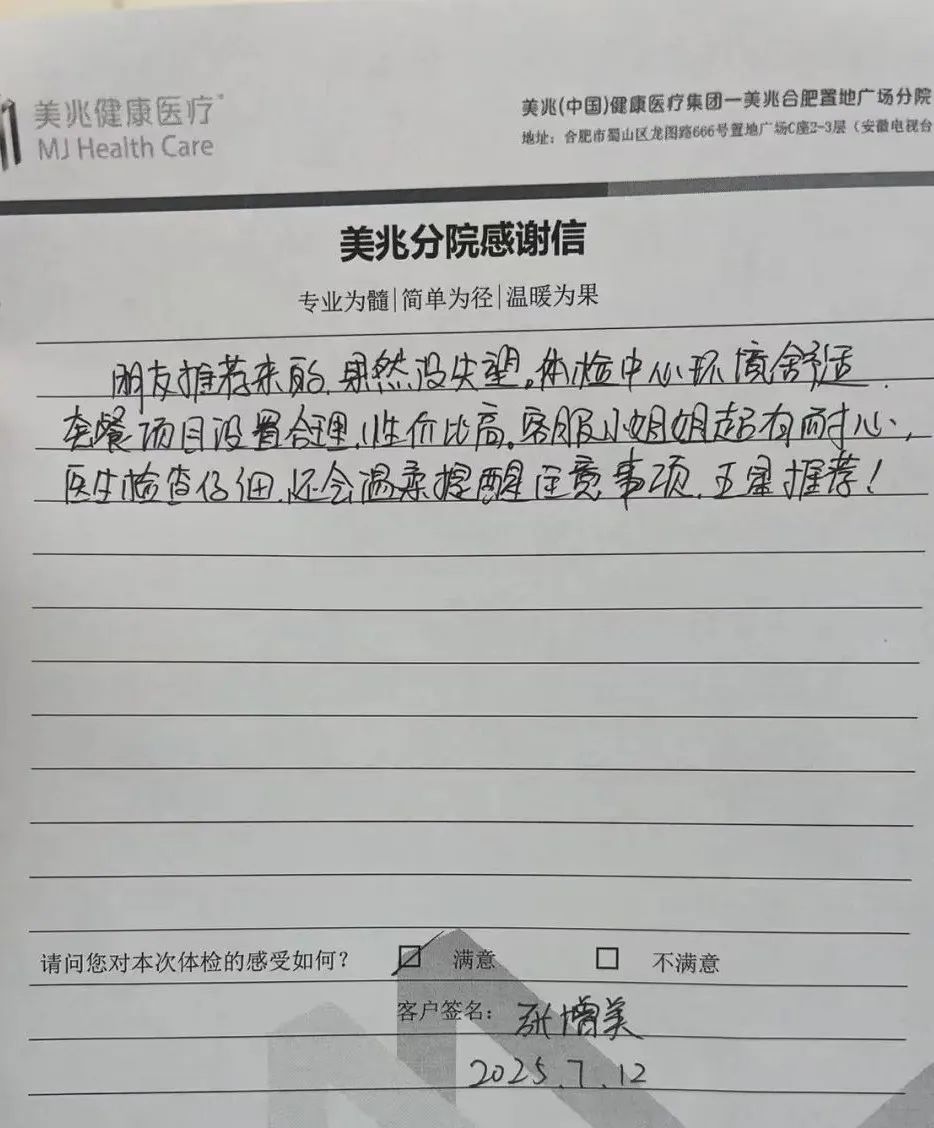 美兆健康医疗
MJ Health Care
美兆(中国)健康医疗集团—美兆合肥置地广场分院
地址：合肥市蜀山区龙图路666号置地广场C座2-3层（安徽电视台
美兆分院感谢信
专业为髓|简单为径|温暖为果
朋友推荐来的,果然没失望。体检中心环境舒适.
套餐项目设置合理,性价比高。客服小姐姐超有耐心,
医生检查仔细,还会温柔提醒注意事项,五星推荐!
请问您对本次体检的感受如何? 满意 不满意
客户签名: 张增美
2025.7.12